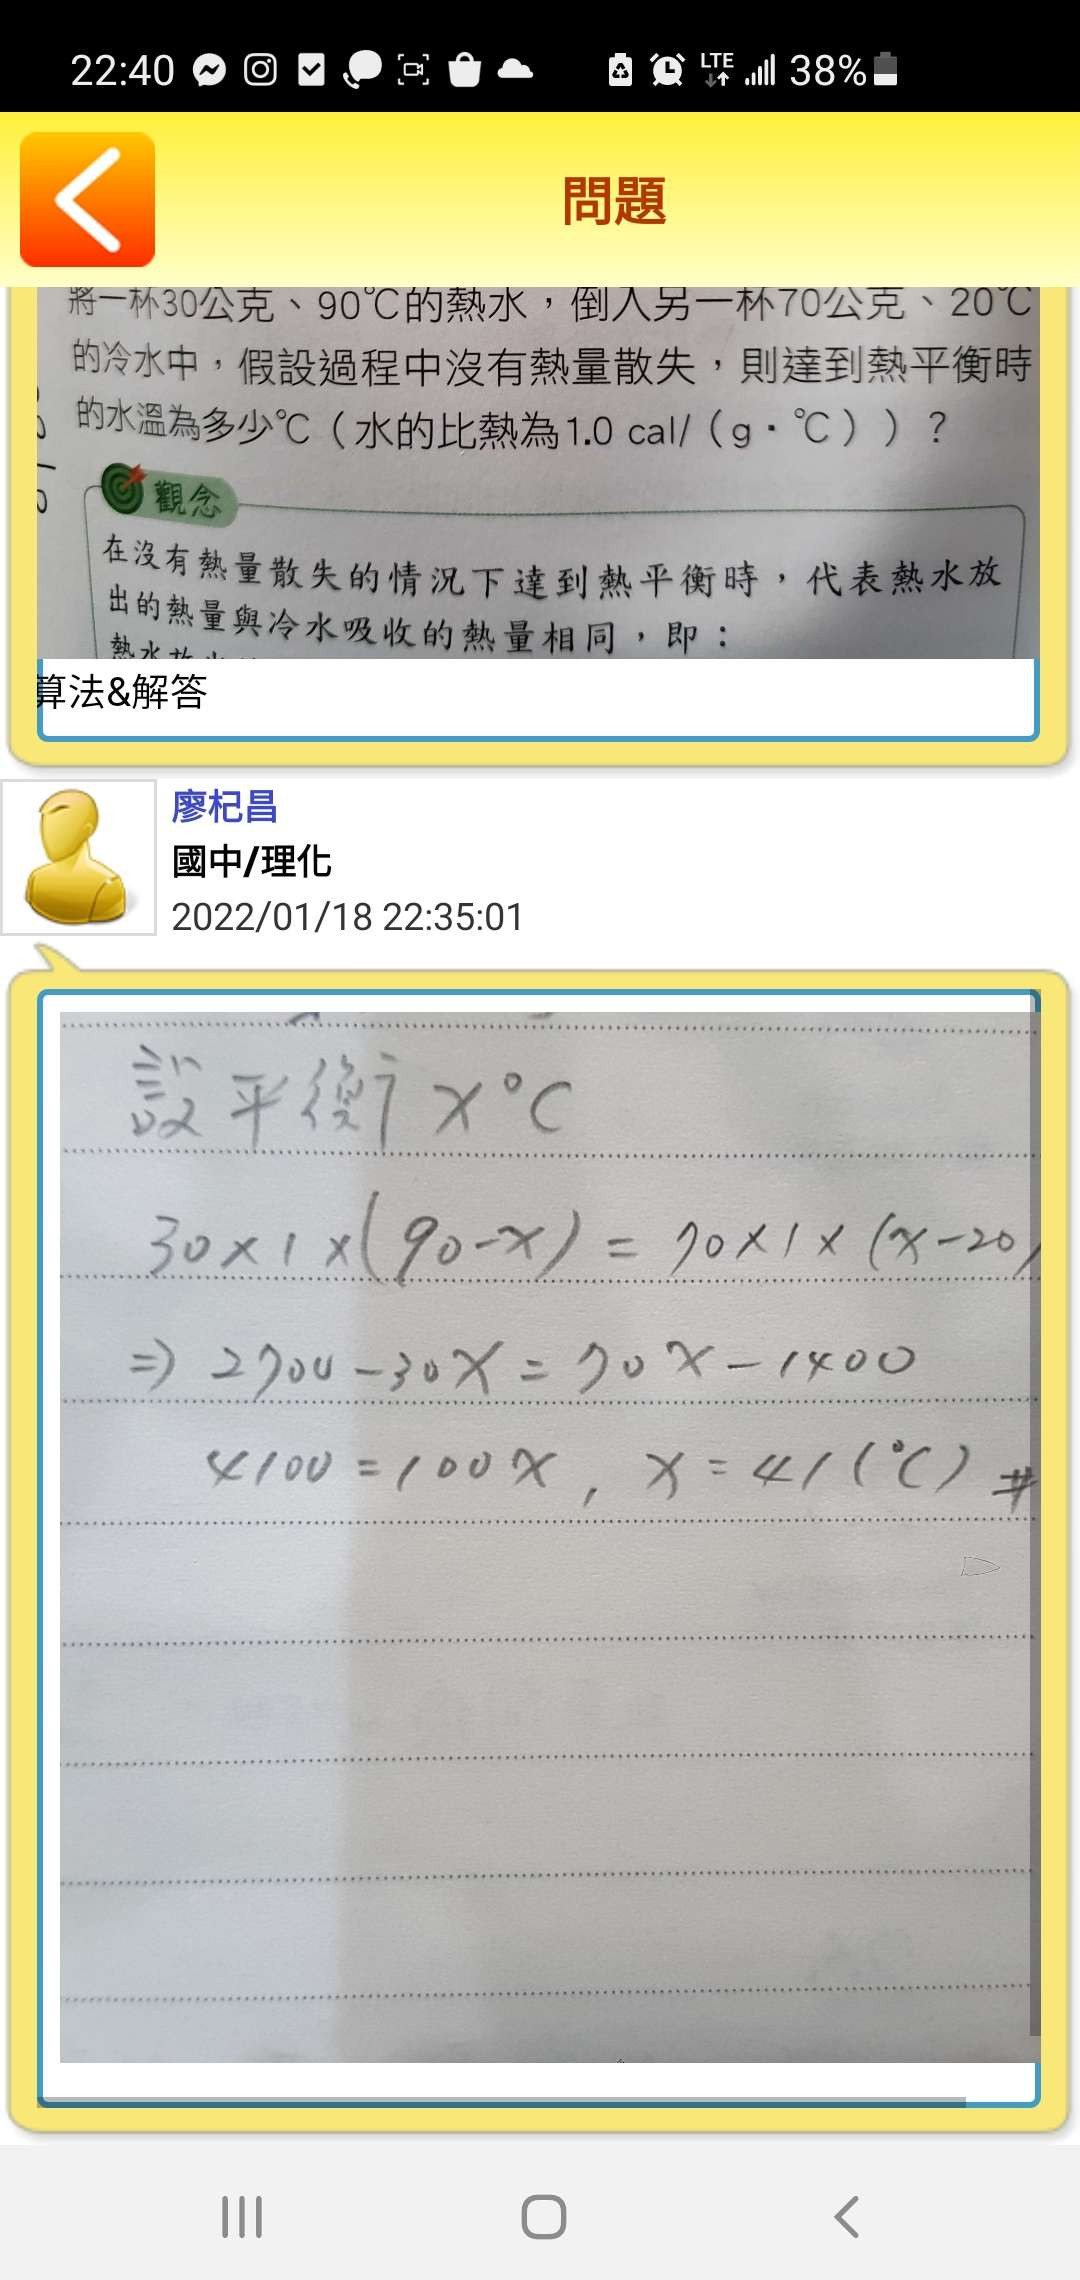 22:40
LTE
38%
問題
將一杯30公克、90℃的熱水，倒入另一杯70公克、20℃
的冷水中，假設過程中沒有熱量散失，則達到熱平衡時
的水溫為多少℃（水的比熱為1.0 cal/（g·℃））？
觀念
在沒有熱量散失的情況下達到熱平衡時，代表熱水放
出的熱量與冷水吸收的熱量相同，即：
熱水放出
算法&解答
廖杞昌
國中/理化
2022/01/18 22:35:01
設平衡 x°C
30×1×(90-x) = 70×1×(x-20)
⇒ 2700-30x = 70x-1400
4100 = 100x, x = 41(°C)#